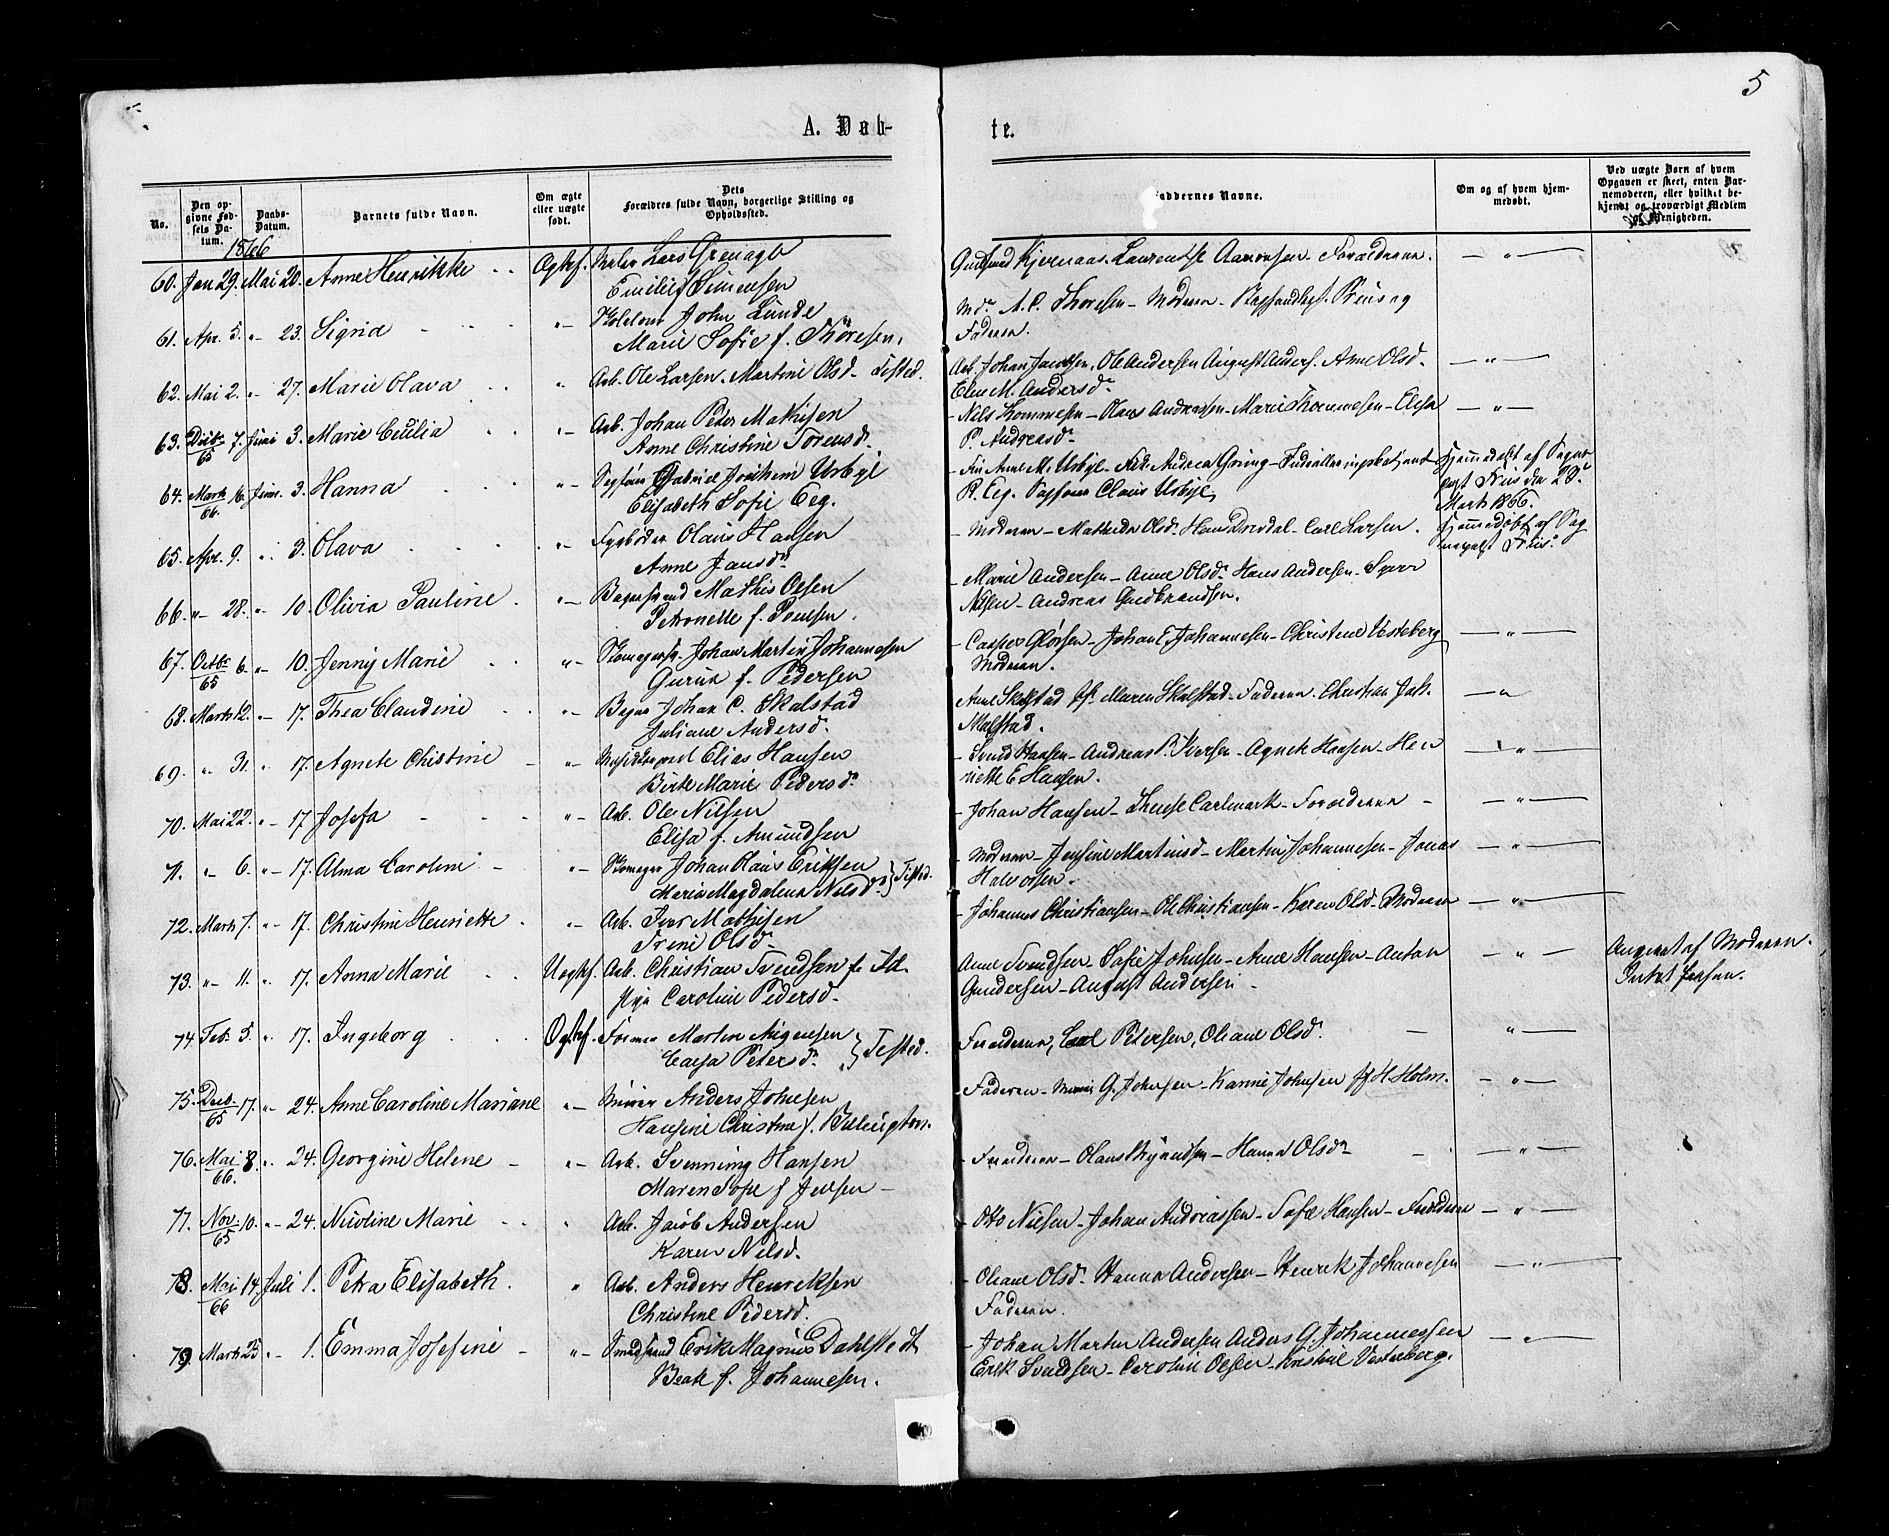 5
A. Døb-
te.
No.
Den opgivne Fødsels Datum.
Daabs-Datum.
Barnets fulde Navn.
Om ægte eller uægte født.
Dets Forældres fulde Navn, borgerlige Stilling og Opholdssted.
Faddernes Navne.
Om og af hvem hjemmedøbt.
Ved uægte Børn af hvem Opgaven er skeet, enten Barnemoderen, eller hvilket bekjendt og troværdigt Medlem af Menigheden.
1866
60. Jan 29. Mai 20. Anne Henrikke Ægtef. Lars Grenager
Emilie f Simensen
Gudmund Kjernaas. Laurentse Aamonsen. Forældrene.
61. Apr. 5. "- 23. Sigrid "- John Lunde
Marie Sofie f. Thoresen.
Md. A. C. Thoresen - Moderen -
Faderen.
62. Mai 2. "- 27. Marie Olava " Arb. Ole Larsen. Martine Olsd. Tisted.
Arb. Johan Jacobsen, Ole Andersen August Anders. Anne Olsd.
Elen M. Andersdr
63. Decbr 65 7. Juni 3. Marie Cecilia "- Arb. Johan Peter Mathisen
Anne Christine Torensd.
- Nils Thommesen - Olaus Andreassen - Marie Thommesen - Elisa
P. Andreasdr
64. Marts 66. 16. Juni 3. Hanna "- Gabriel Joachim Usbye
Elisabeth Sofie Eeg.
- Frk Anne M. Usbye - Frk. Andrea Gring -
R. Eeg. Claus Usbye,
Hjemmedøbt af Sogne
præst Friis den 29.
Marts 1866.
65. Apr. 9. "- 3. Olava "- Fyrbøder Olaus Hansen
Anne Jansdr
- Moderen - Mathilda Olsd. Hans Drevdal - Carl Larsen.
Hjemmedøbt af Sog
nepræst Friis.
66. "- 28. "- 10. Olivia Pauline "- Bagersvend Mathis Olsen
Petronelle f. Poulsen.
- Marie Andersen - Anne Olsd. Hans Andersen - Syver
Nilsen - Andreas Gudbrandsen.
67. Octbr 65 6. "- 10. Jenny Marie "- Skomagersv. Johan Martin Johannesen
Gurina f. Pedersen
- Casper Glørsen - Johan E Johannesen - Christine Vesteberg
Moderen.
68. Marts 12. "- 17. Thea Claudine "- Bager Johan C. Skalstad
Juliane Andersd.
Anne Skalstad Maren Skalstad - Faderen. Christian Joh.
Melstad.
69. " 31. " 17. Agnete Christine "- Elias Hansen
Birte Marie Pedersd.
- Svend Hansen - Andreas P. Iversen - Agnete Hansen - Hen
riette E Hansen.
70. Mai 22. "- 17. Josefa "- Arb. Ole Nilsen
Elisa f. Amundsen
- Johan Hansen - Therese Carlmark - Forældrene -
71. "- 6. "- 17. Alma Caroline "- Skomager Johan Olaus Eriksen
Maria Magdalena Nilsd. } Tisted.
- Moderen - Jensine Martinsd - Martin Johannesen - Jonas
Halvorsen.
72. Marts 7. "- 17. Christine Henriette "- Arb. Iver Mathisen
Trine Olsd.
- Johannes Christiansen - Ole Christiansen - Karen Olsd - Moderen
73. "- 11. " 17. Anna Marie Uægtef. Arb. Christian Svendsen fr Id.
Pige Caroline Pedersd.
Anne Svendsen Sofie Johnsen - Anne Hansen - Anton
Gundersen - August Andersen -
Angivet af Moderen.
74. Feb. 5. "- 17. Ingeborg Ægtef. Former Martin Mogensen
Caisa Petersdr } Tisted.
Forældrene, Carl Petersen, Oleane Olsd.
75. Decb 65 17. "- 24. Anne Caroline Mariane "- Murer Anders Johnsen
Hansine Christine f. Billington.
- Faderen - Marie G. Johnsen - Karine Johnsen H. Holm.
76. Mai 66. 8. "- 24. Georgine Helene "- Arb. Svenning Hansen
Maren Sofie f Jensen -
- Forældrene - Olaus - Hanna Olsdr
77. Nov 65 10. "- 24. Nicoline Marie " Arb. Jacob Andersen
Karen Nilsd.
- Otto Nielsen - Johan Andreassen - Sofie Hansen - Forældrene
78. Mai 66 14. Juli 1. Petra Elisabeth. " Arb. Anders Henriksen
Christine Pedersd.
- Oleane Olsd. Hanna Andersen - Henrik Johannesen
Faderen.
79. Marts 25 "- 1. Emma Josefine "- Smedsvend Erik Magnus Dahlstedt
Beate f. Johannesen.
- Johan Martin Andersen Anders G. Johannessen
Erik Svendsen - Caroline Olsen - Kristine Vesterberg.